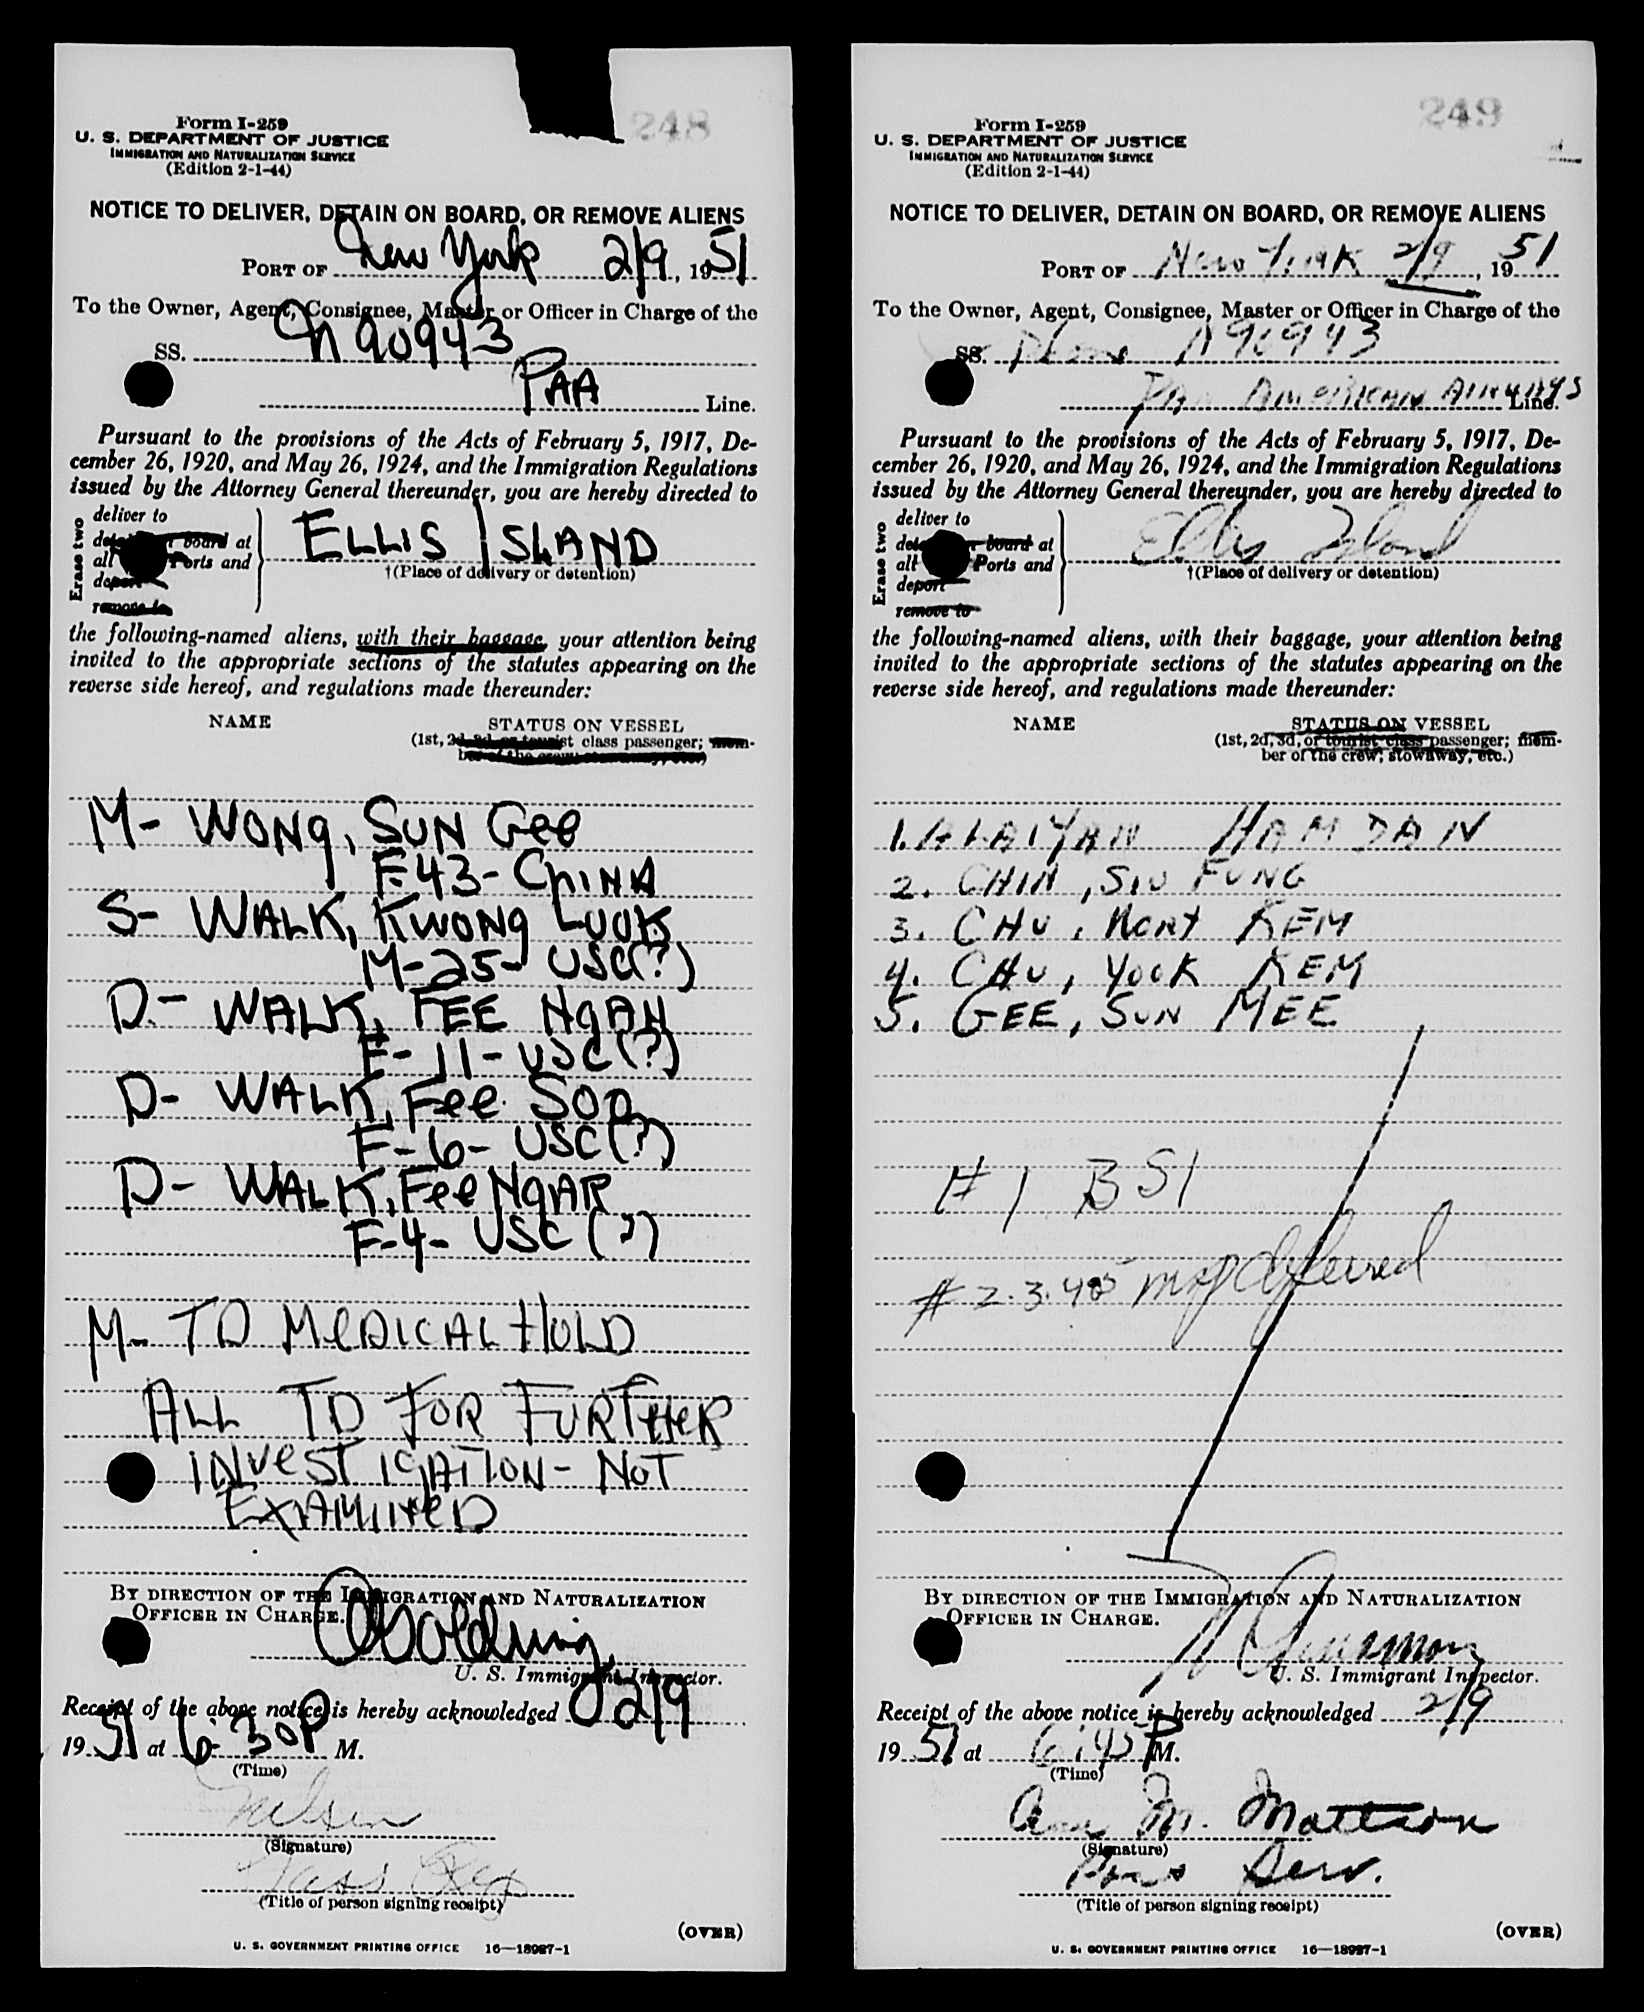 248
Form I-259
U. S. DEPARTMENT OF JUSTICE
IMMIGRATION AND NATURALIZATION SERVICE
(Edition 2-1-44)
NOTICE TO DELIVER, DETAIN ON BOARD, OR REMOVE ALIENS
PORT OF New York 2/9, 1951
To the Owner, Agent, Consignee, Master or Officer in Charge of the
SS. N90943
PAA Line.
Pursuant to the provisions of the Acts of February 5, 1917, De-
cember 26, 1920, and May 26, 1924, and the Immigration Regulations
issued by the Attorney General thereunder, you are hereby directed to
Erase two
deliver to
board at
all Ports and
deport
remove to
ELLIS ISLAND
†(Place of delivery or detention)
the following-named aliens, with their baggage, your attention being
invited to the appropriate sections of the statutes appearing on the
reverse side hereof, and regulations made thereunder:
NAME STATUS ON VESSEL
(1st, 2d, 3d, or tourist class passenger; mem-
ber of the crew; stowaway, etc.)
M- WONG, SUN Gee
F-43- CHINA
S- WALK, KWONG LOOK
M-25- USC(?)
D- WALK, FEE NGAN
F-11- USC(?)
D- WALK, Fee SOO
F-6- USC(?)
D- WALK, Fee NGAR
F-4- USC(?)
M- TD MEDICAL HOLD
ALL TD FOR FURTHER
INVESTIGATION- NOT
EXAMINED
BY DIRECTION OF THE IMMIGRATION AND NATURALIZATION
OFFICER IN CHARGE.
U. S. Immigrant Inspector.
Receipt of the above notice is hereby acknowledged 2/9
1951 at 6:30P M.
(Time)
Nelsen
(Signature)
Pass
(Title of person signing receipt)
(OVER)
U. S. GOVERNMENT PRINTING OFFICE 16—18987-1
249
Form I-259
U. S. DEPARTMENT OF JUSTICE
IMMIGRATION AND NATURALIZATION SERVICE
(Edition 2-1-44)
NOTICE TO DELIVER, DETAIN ON BOARD, OR REMOVE ALIENS
PORT OF New York 2/9, 1951
To the Owner, Agent, Consignee, Master or Officer in Charge of the
SS. Plane N90943
PAN AMERICAN AIRWAYS Line.
Pursuant to the provisions of the Acts of February 5, 1917, De-
cember 26, 1920, and May 26, 1924, and the Immigration Regulations
issued by the Attorney General thereunder, you are hereby directed to
Erase two
deliver to
board at
all Ports and
deport
remove to
Ellis Island
†(Place of delivery or detention)
the following-named aliens, with their baggage, your attention being
invited to the appropriate sections of the statutes appearing on the
reverse side hereof, and regulations made thereunder:
NAME STATUS ON VESSEL
(1st, 2d, 3d, or tourist class passenger; mem-
ber of the crew; stowaway, etc.)
1. ALAIYAN HAMDAN
2. CHIN, SIU FUNG
3. CHU, KEM
4. CHU, YOOK KEM
5. GEE, SUN MEE
#1 BSI
#2.3.4&5 deferred
BY DIRECTION OF THE IMMIGRATION AND NATURALIZATION
OFFICER IN CHARGE.
U. S. Immigrant Inspector.
Receipt of the above notice is hereby acknowledged 2/9
1951 at 6:45P M.
(Time)
M. Mattson
(Signature)
Pass Serv.
(Title of person signing receipt)
(OVER)
U. S. GOVERNMENT PRINTING OFFICE 16—18987-1